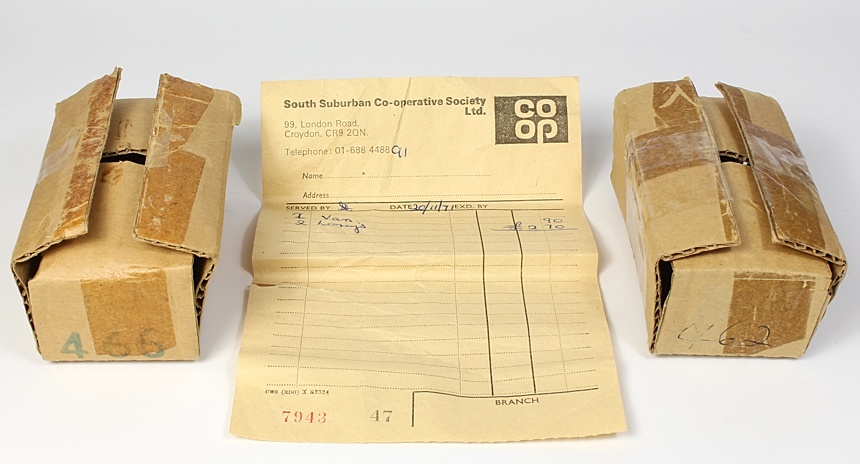 South Suburban Co-operative Society
Ltd.
CO
OP
99, London Road,
Croydon. CR9 2QN.
Telephone: 01-688 4488 91
Name
Address
SERVED BY DATE 20/11/71 EXD. BY
1 Van 90
2 Lorrys £2 70
CWS (RDG) X 87324
7943 47
BRANCH
466
462